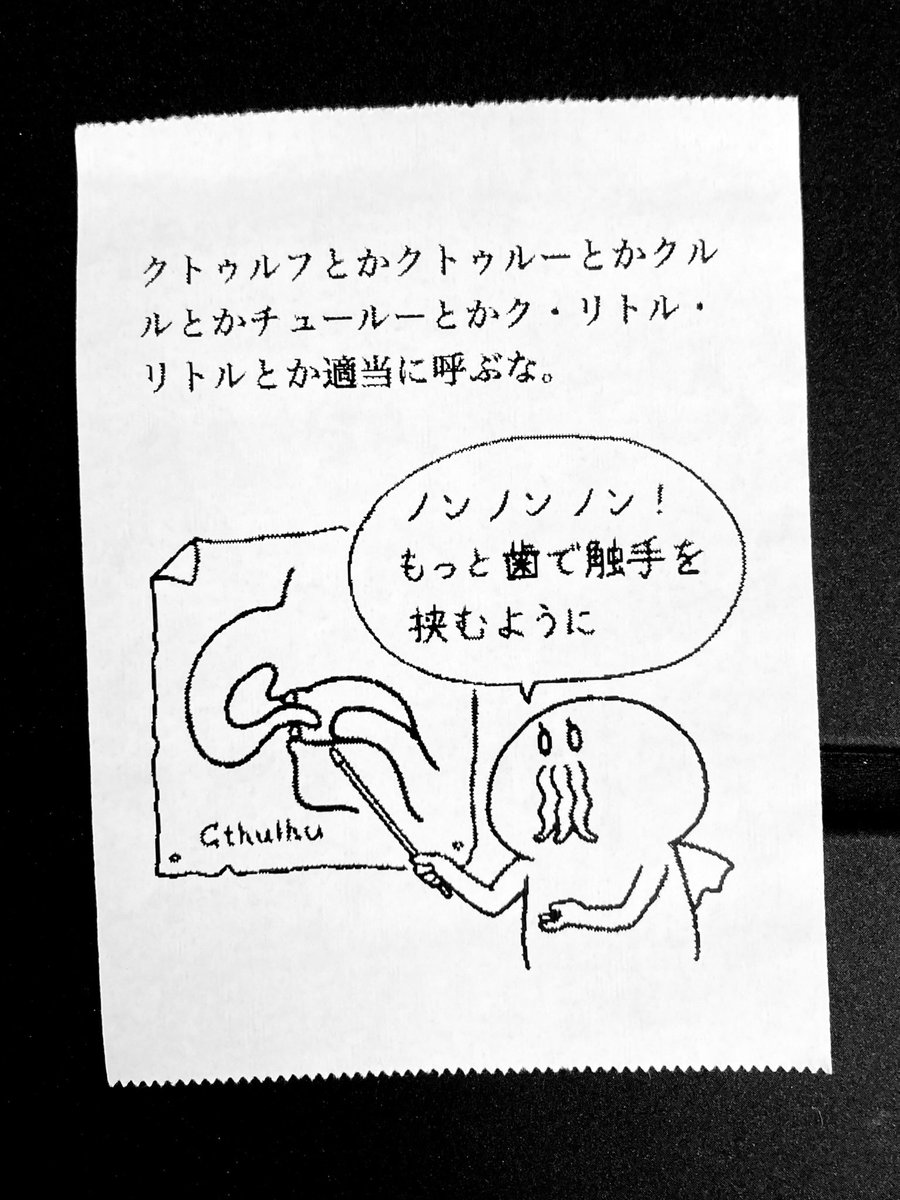 クトゥルフとかクトゥルーとかクル
ルとかチュールーとかク・リトル・
リトルとか適当に呼ぶな。
ノンノンノン！
もっと歯で触手を
挟むように
Cthulhu